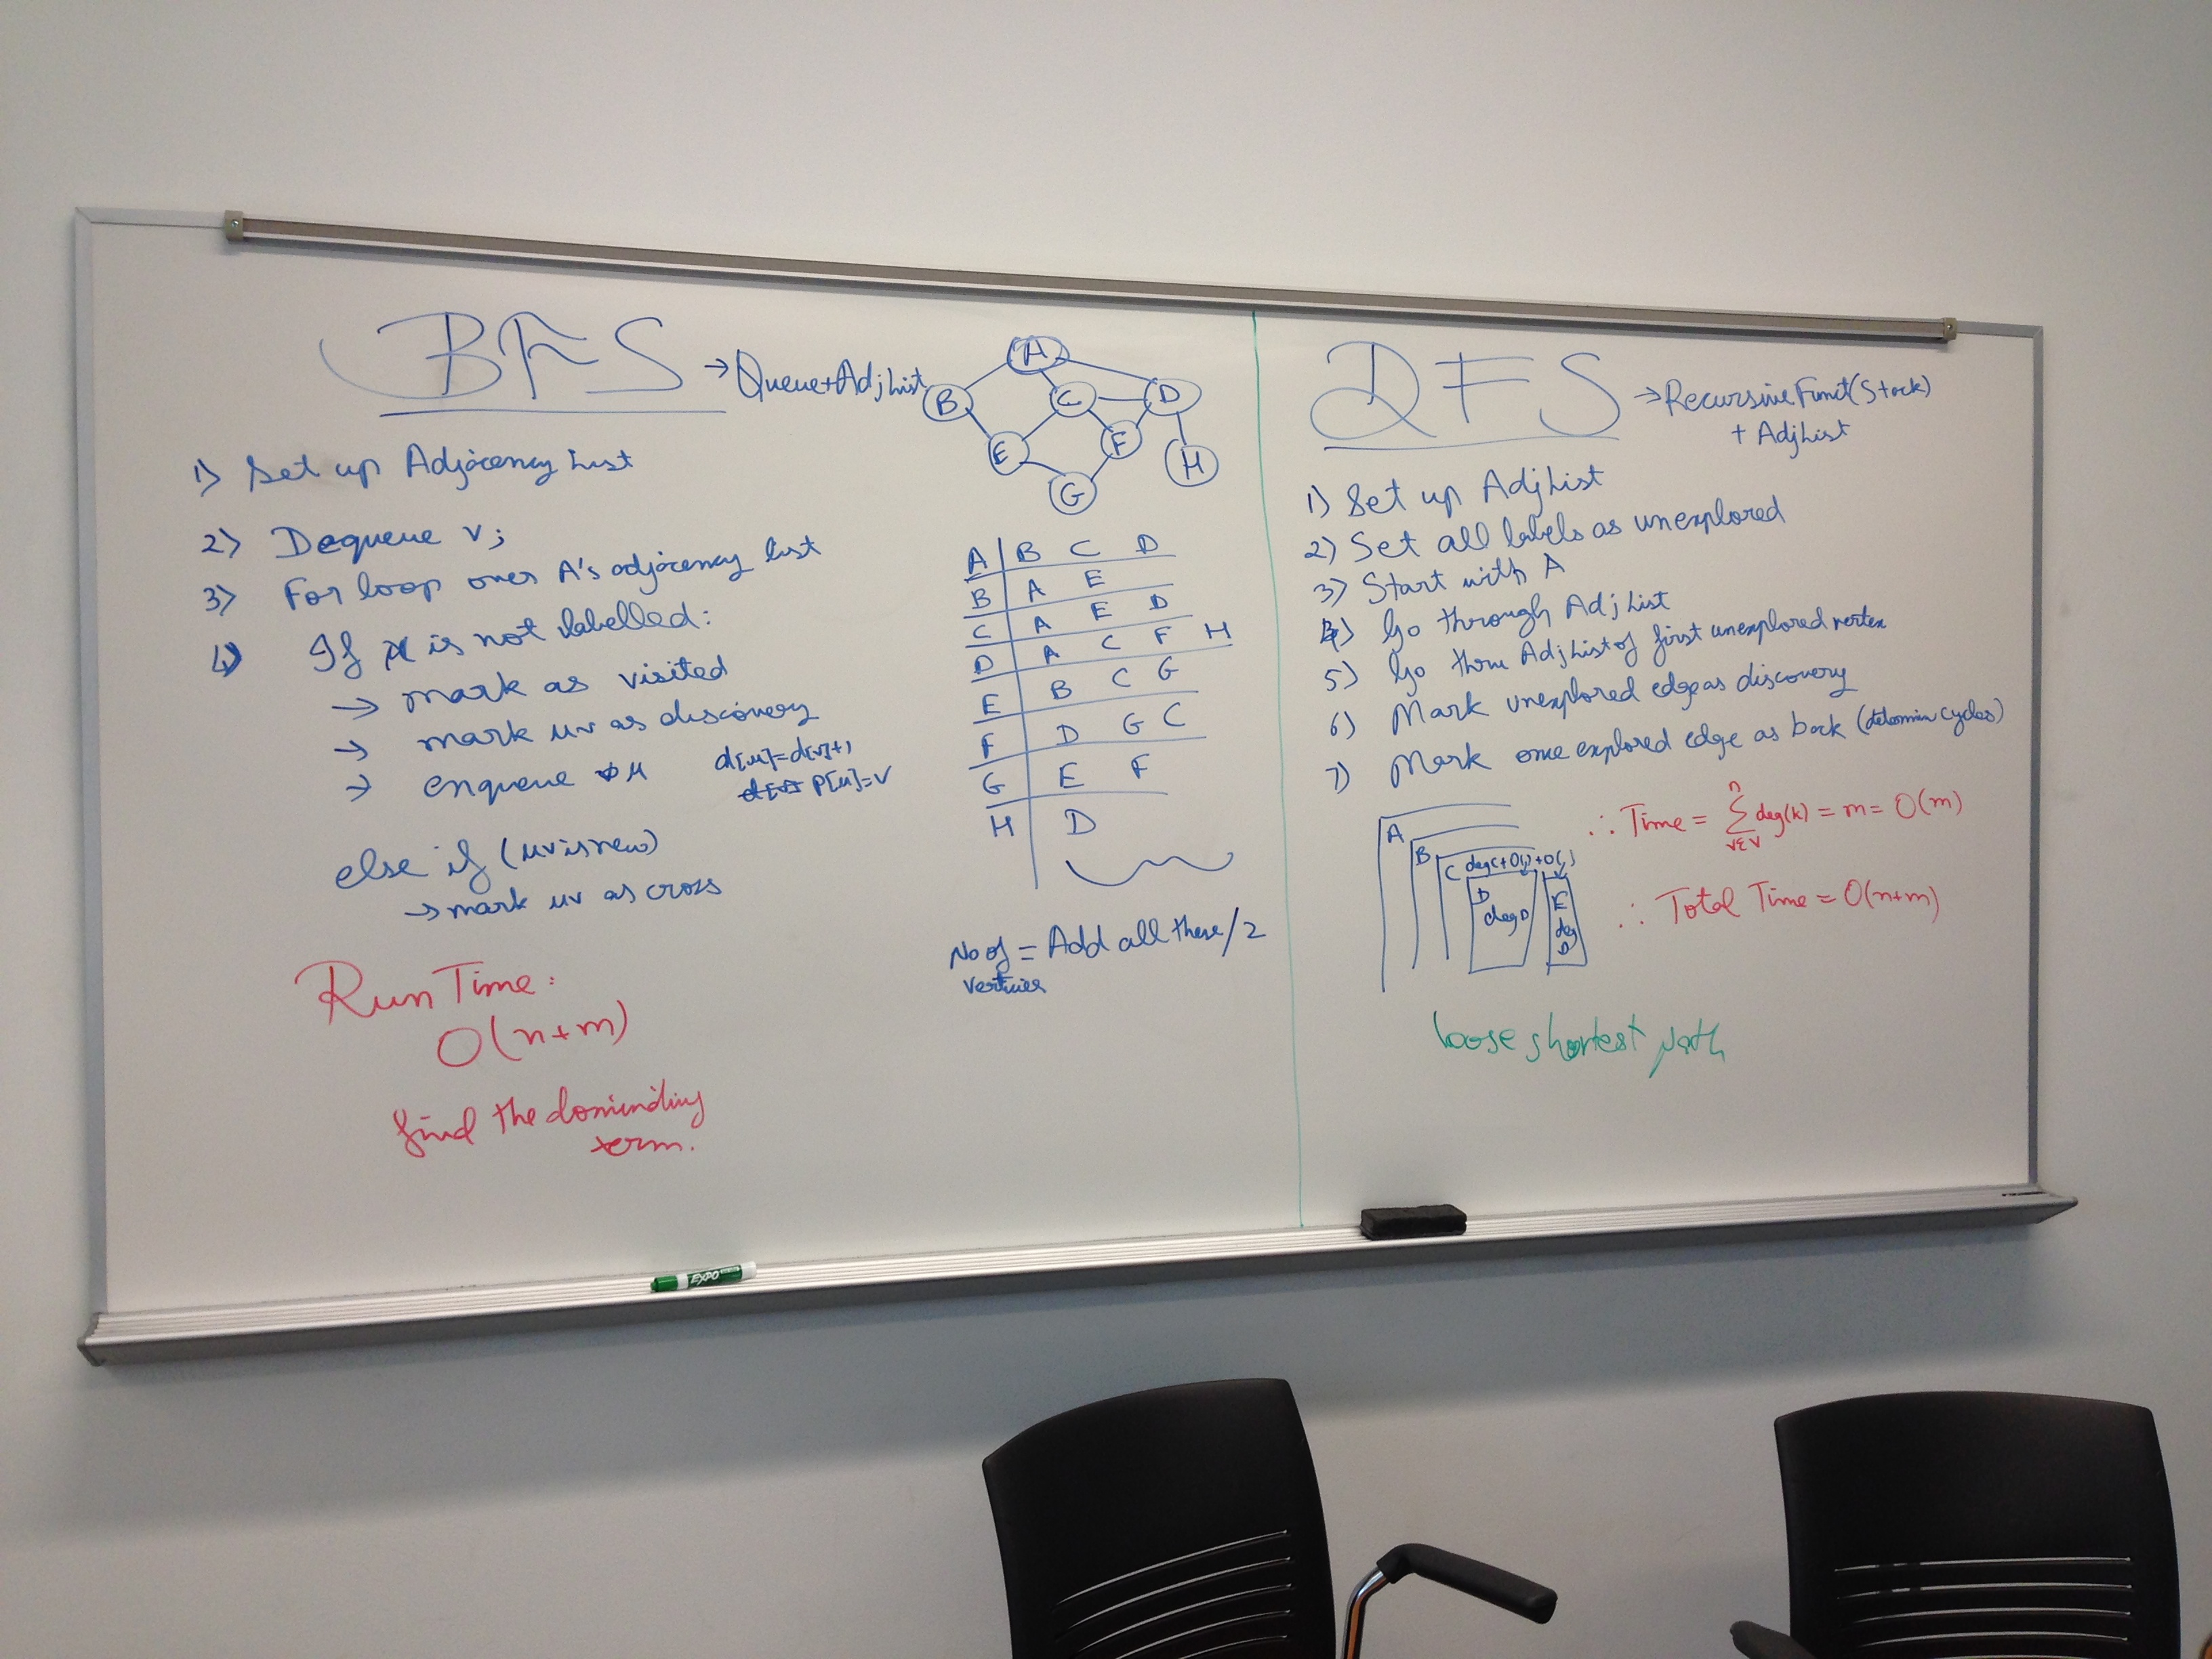 BFS → Queue + Adj List
1) Set up Adjacency List
2) Dequeue v;
3) For loop over A's adjacency list
4) If u is not labelled:
→ mark as visited
→ mark uv as discovery
→ enqueue u
d[u]=d[v]+1
P[u]=v
else if (uv is new)
→ mark uv as cross
Run Time:
O(n+m)
find the
term.
A
B
C
D
E
F
H
G
A | B C D
B | A E
C | A E D
D | A C F H
E | B C G
F | D G C
G | E F
H | D
No of = Add all these/2
vertices
DFS → Recursive Funct(Stack)
+ AdjList
1) Set up AdjList
2) Set all labels as unexplored
3) Start with A
4) Go through AdjList
5) Go thru AdjList of first unexplored vertex
6) Mark unexplored edge as discovery
7) Mark once explored edge as back (determin cycles)
A
B
C deg C + O(1) + O(1)
D
deg D
E
deg
D
∴ Time = Σ deg(k) = m = O(m)
n
v∈V
∴ Total Time = O(n+m)
loose shortest path
EXPO